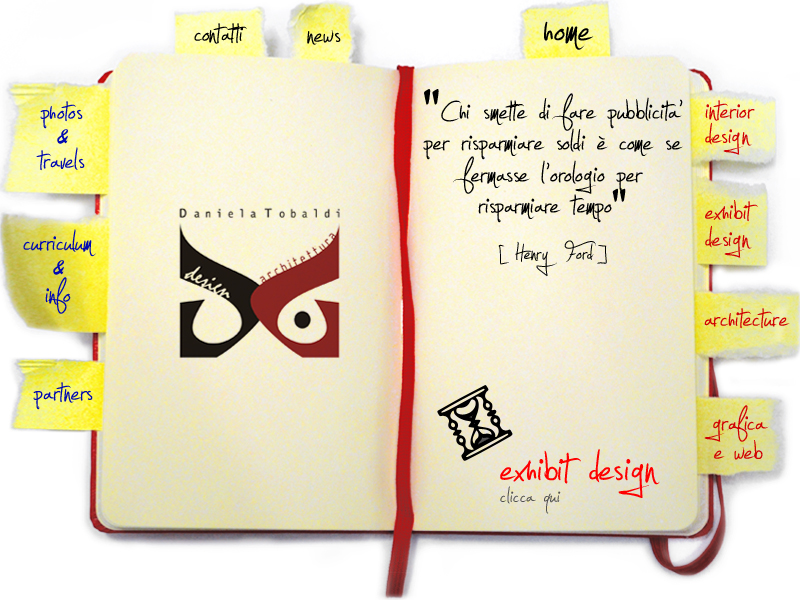 contatti
news
home
photos
&
travels
curriculum
&
info
partners
Daniela Tobaldi
design
architettura
"Chi smette di fare pubblicita'
per risparmiare soldi è come se
fermasse l'orologio per
risparmiare tempo"
[ Henry Ford ]
exhibit design
clicca qui
interior
design
exhibit
design
architecture
grafica
e web